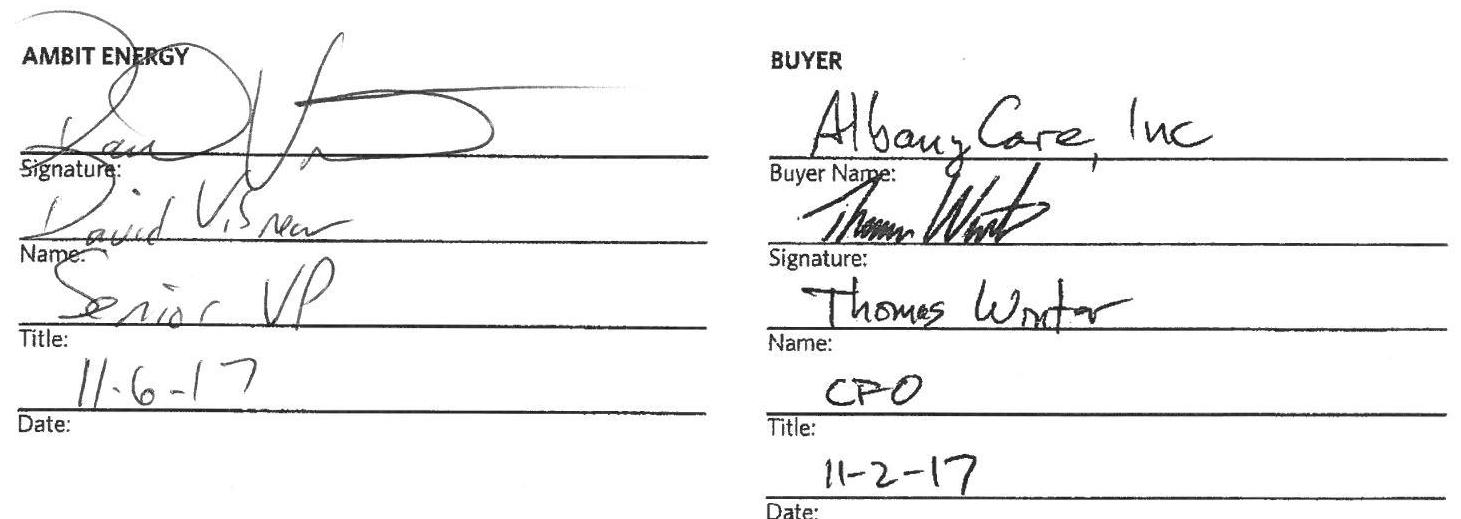 AMBIT ENERGY
Signature:
David Visnear
Name:
Senior VP
Title:
11-6-17
Date:
BUYER
Albany Care, Inc
Buyer Name:
Thomas Winter
Signature:
Thomas Winter
Name:
CFO
Title:
11-2-17
Date: